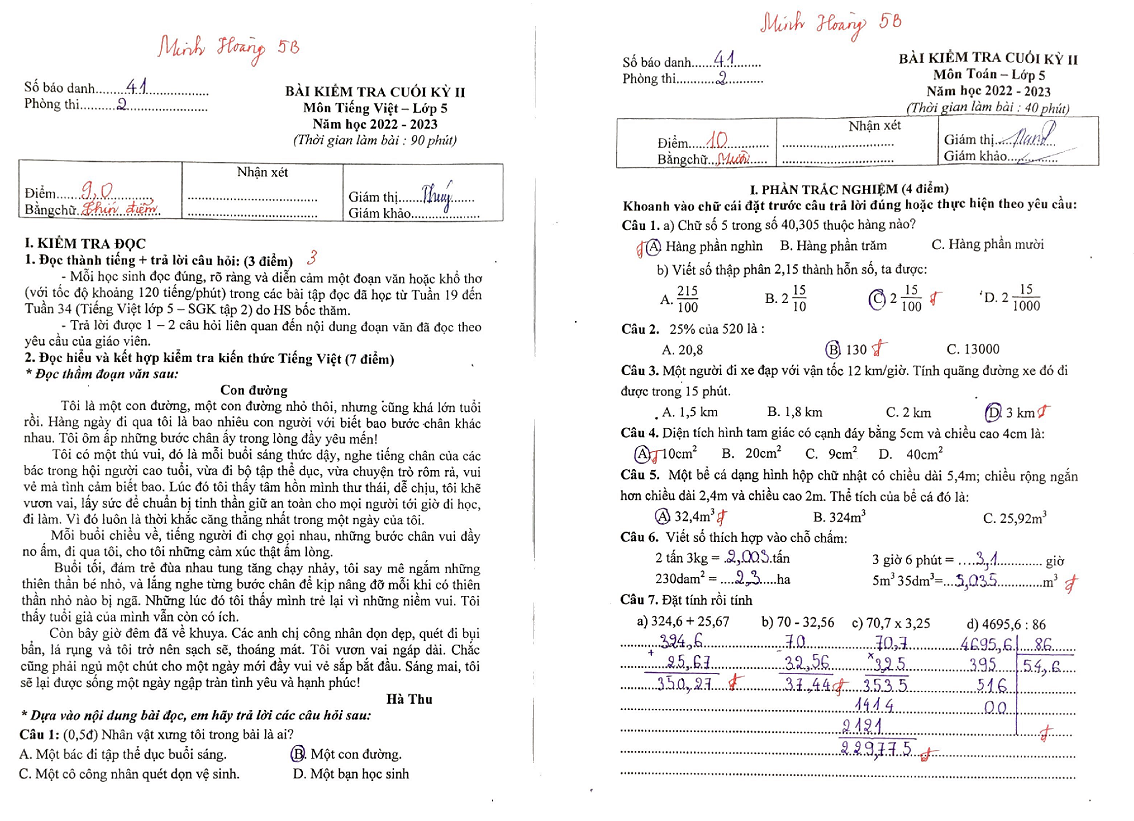 Minh Hoàng 5B
Số báo danh......41..................
Phòng thi.........2......................
BÀI KIỂM TRA CUỐI KỲ II
Môn Tiếng Việt – Lớp 5
Năm học 2022 - 2023
(Thời gian làm bài : 90 phút)
Nhận xét
Điểm......9,0..............
Bằngchữ.Chín điểm
Giám thị......Thuý.......
Giám khảo..................
I. KIỂM TRA ĐỌC
1. Đọc thành tiếng + trả lời câu hỏi: (3 điểm) 3
- Mỗi học sinh đọc đúng, rõ ràng và diễn cảm một đoạn văn hoặc khổ thơ
(với tốc độ khoảng 120 tiếng/phút) trong các bài tập đọc đã học từ Tuần 19 đến
Tuần 34 (Tiếng Việt lớp 5 – SGK tập 2) do HS bốc thăm.
- Trả lời được 1 – 2 câu hỏi liên quan đến nội dung đoạn văn đã đọc theo
yêu cầu của giáo viên.
2. Đọc hiểu và kết hợp kiểm tra kiến thức Tiếng Việt (7 điểm)
* Đọc thầm đoạn văn sau:
Con đường
Tôi là một con đường, một con đường nhỏ thôi, nhưng cũng khá lớn tuổi
rồi. Hàng ngày đi qua tôi là bao nhiêu con người với biết bao bước chân khác
nhau. Tôi ôm ấp những bước chân ấy trong lòng đầy yêu mến!
Tôi có một thú vui, đó là mỗi buổi sáng thức dậy, nghe tiếng chân của các
bác trong hội người cao tuổi, vừa đi bộ tập thể dục, vừa chuyện trò rôm rả, vui
vẻ mà tình cảm biết bao. Lúc đó tôi thấy tâm hồn mình thư thái, dễ chịu, tôi khẽ
vươn vai, lấy sức để chuẩn bị tinh thần giữ an toàn cho mọi người tới giờ đi học,
đi làm. Vì đó luôn là thời khắc căng thẳng nhất trong một ngày của tôi.
Mỗi buổi chiều về, tiếng người đi chợ gọi nhau, những bước chân vui đầy
no ấm, đi qua tôi, cho tôi những cảm xúc thật ấm lòng.
Buổi tối, đám trẻ đùa nhau tung tăng chạy nhảy, tôi say mê ngắm những
thiên thần bé nhỏ, và lắng nghe từng bước chân để kịp nâng đỡ mỗi khi có thiên
thần nhỏ nào bị ngã. Những lúc đó tôi thấy mình trẻ lại vì những niềm vui. Tôi
thấy tuổi già của mình vẫn còn có ích.
Còn bây giờ đêm đã về khuya. Các anh chị công nhân dọn dẹp, quét đi bụi
bẩn, lá rụng và tôi trở nên sạch sẽ, thoáng mát. Tôi vươn vai ngáp dài. Chắc
cũng phải ngủ một chút cho một ngày mới đầy vui vẻ sắp bắt đầu. Sáng mai, tôi
sẽ lại được sống một ngày ngập tràn tình yêu và hạnh phúc!
Hà Thu
* Dựa vào nội dung bài đọc, em hãy trả lời các câu hỏi sau:
Câu 1: (0,5đ) Nhân vật xưng tôi trong bài là ai?
A. Một bác đi tập thể dục buổi sáng. B. Một con đường.
C. Một cô công nhân quét dọn vệ sinh. D. Một bạn học sinh
Minh Hoàng 5B
Số báo danh......41........
Phòng thi............2........
BÀI KIỂM TRA CUỐI KỲ II
Môn Toán – Lớp 5
Năm học 2022 - 2023
(Thời gian làm bài : 40 phút)
Nhận xét
Điểm.....10.............
Bằngchữ...Mười.....
Giám thị
Giám khảo
I. PHẦN TRẮC NGHIỆM (4 điểm)
Khoanh vào chữ cái đặt trước câu trả lời đúng hoặc thực hiện theo yêu cầu:
Câu 1. a) Chữ số 5 trong số 40,305 thuộc hàng nào?
A Hàng phần nghìn B. Hàng phần trăm C. Hàng phần mười
b) Viết số thập phân 2,15 thành hỗn số, ta được:
A. 215/100 B. 2 15/10 C 2 15/100 D. 2 15/1000
Câu 2. 25% của 520 là :
A. 20,8 B. 130 C. 13000
Câu 3. Một người đi xe đạp với vận tốc 12 km/giờ. Tính quãng đường xe đó đi
được trong 15 phút.
A. 1,5 km B. 1,8 km C. 2 km D. 3 km
Câu 4. Diện tích hình tam giác có cạnh đáy bằng 5cm và chiều cao 4cm là:
A 10cm² B. 20cm² C. 9cm² D. 40cm²
Câu 5. Một bể cá dạng hình hộp chữ nhật có chiều dài 5,4m; chiều rộng ngắn
hơn chiều dài 2,4m và chiều cao 2m. Thể tích của bể cá đó là:
A 32,4m³ B. 324m³ C. 25,92m³
Câu 6. Viết số thích hợp vào chỗ chấm:
2 tấn 3kg = .2,003.tấn 3 giờ 6 phút = ....3,1............. giờ
230dam² = ....2,3.....ha 5m³ 35dm³=...5,035............m³
Câu 7. Đặt tính rồi tính
a) 324,6 + 25,67 b) 70 - 32,56 c) 70,7 x 3,25 d) 4695,6 : 86
324,6 70 70,7 4695,6 86
+ 25,67 - 32,56 x 325 395 54,6
350,27 37,44 3535 516
1414 00
2121
229,775